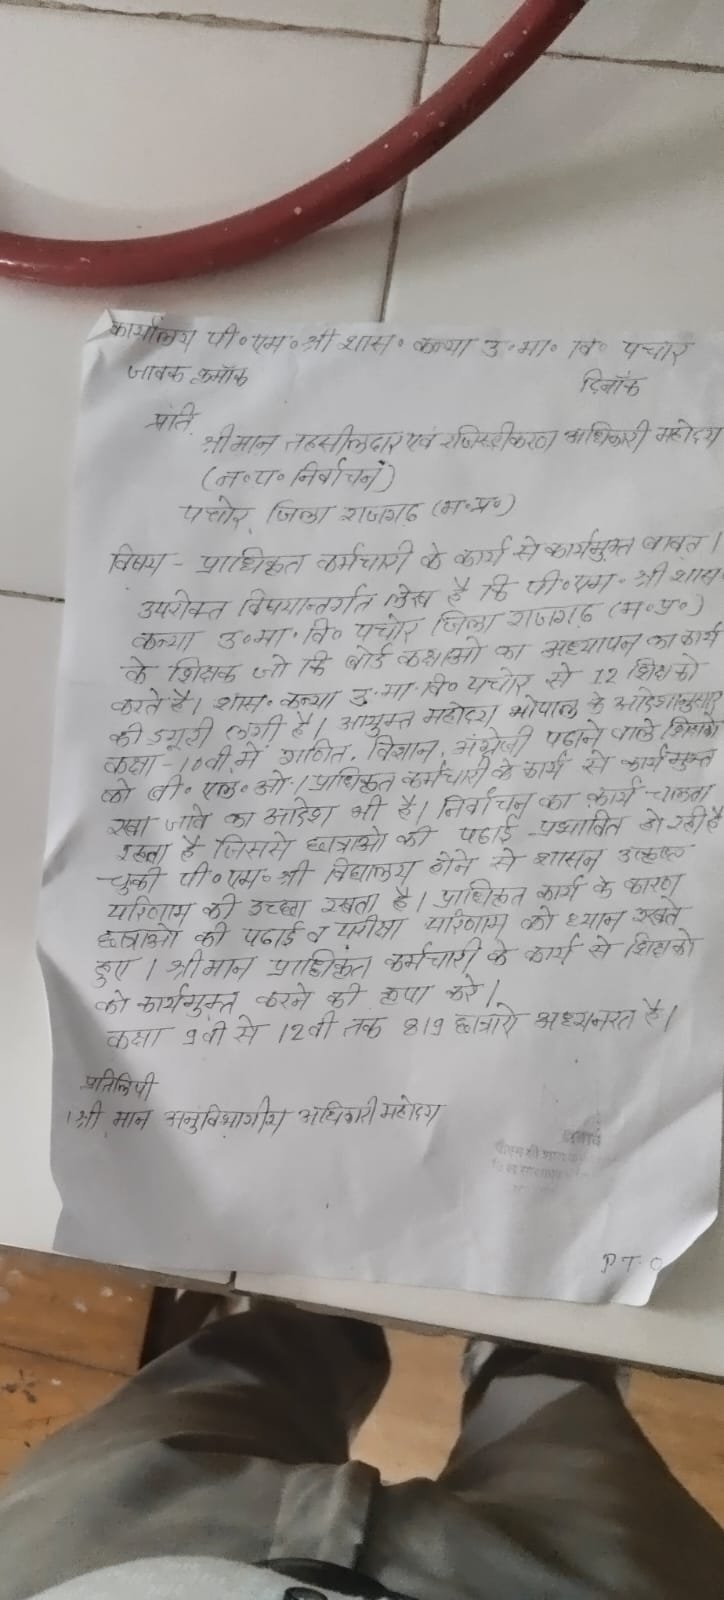 कार्यालय पी॰एम॰श्री शास॰ कन्या उ॰मा॰ वि॰ पचोर
जावक क्रमाँक दिनाँक
प्रति,
श्रीमान तहसीलदार एवं रजिस्ट्रीकरण अधिकारी महोदय
(न॰प॰ निर्वाचन)
पचोर, जिला राजगढ (म॰प्र॰)
विषय - प्राधिकृत कर्मचारी के कार्य से कार्यमुक्त बावत।
उपरोक्त विषयान्तर्गत लेख है कि पी॰एम॰ श्री शास॰
कन्या उ॰मा॰ वि॰ पचोर जिला राजगढ (म॰प्र॰)
के शिक्षक जो कि बोर्ड कक्षाओ का अध्यापन का कार्य
करते है। शास॰ कन्या उ॰मा॰वि॰ पचोर से 12 शिक्षको
की ड्यूटी लगी है। आयुक्त महोदय भोपाल के आदेशानुसार
कक्षा - 10वी में गणित, विज्ञान, अंग्रेजी पढाने वाले शिक्षको
को बी॰ एल॰ ओ॰। प्राधिकृत कर्मचारी के कार्य से कार्यमुक्त
रखा जावे का आदेश भी है। निर्वाचन का कार्य चलता
रहता है जिससे छात्राओ की पढाई प्रभावित हो रही है
चुकी पी॰एम॰ श्री विद्यालय होने से शासन उत्कृष्ट
परिणाम की इच्छा रखता है। प्राधिकृत कार्य के कारण
छात्राओ की पढाई व परीक्षा परिणाम को ध्यान रखते
हुए। श्रीमान प्राधिकृत कर्मचारी के कार्य से शिक्षको
को कार्यमुक्त करने की कृपा करे।
कक्षा 9वी से 12वी तक 819 छात्राऐ अध्यनरत है।
प्रतिलिपी
1. श्री मान अनुविभागीय अधिकारी महोदय
P T O